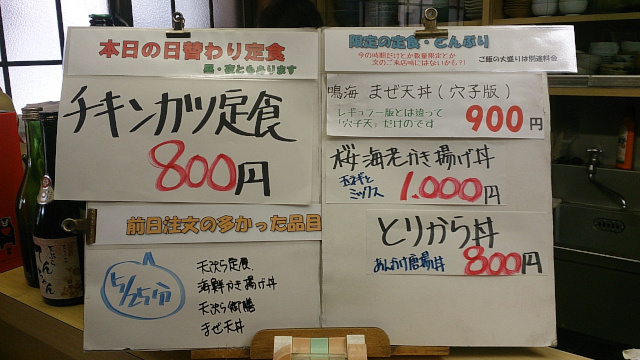 本日の日替わり定食
昼・夜ともあります
チキンカツ定食
800円
前日注文の多かった品目
5/25分
天ぷら定食
海鮮かき揚げ丼
天ぷら御膳
まぜ天丼
限定の定食・どんぶり
今の時期だけとか数量限定とか
次のご来店時にはないかも?!
ご飯の大盛りは別途料金
鳴海 まぜ天丼(穴子版)
レギュラー版とは違って
「穴子天」だけのです
900円
桜海老かき揚げ丼
玉ねぎと
ミックス
1,000円
とりから丼
あんかけ唐揚丼
800円